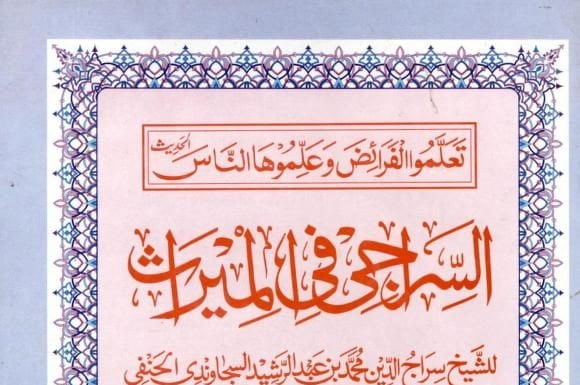 تَعَلَّمُوا الْفَرَائِضَ وَعَلِّمُوْهَا النَّاسَ الحديث
السِّرَاجِيْ فِي الْمِيْرَاثِ
للشَّيْخِ سِرَاجُ الدِّيْنِ مُحَمَّد بن عَبْدِ الرَّشِيْد السجاوندي الحَنَفِي